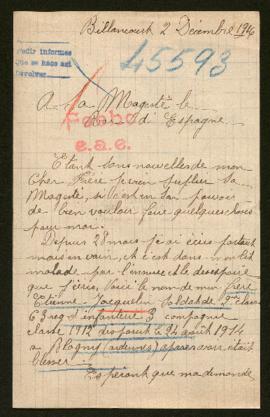 Billancourt 2 Décembre 1916
Pedir informes
Que se haga así
Devolver
45593
A Sa Magesté le
Roi d'Espagne
Fecho
e.a.e.
Etant sans nouvelles de mon
Cher Frère je vien suplier Sa
Magesté, si il est en son pouvoir
de bien vouloir faire quelques choses
pour moi.
Depuis 28 mois j'ai écris partout
mais en vain, et c'est dans
malade par l'inquiétude et desespoir
que j'écris, voici le nom de mon frère
Etienne Jacquelin Soldat de 2me classe
63 regt d'infanterie 3 compagnie
classe 1912 disparut le 24 août 1914
a Blagny (ardennes) apres avoir était
blesser
Espérant que ma demande